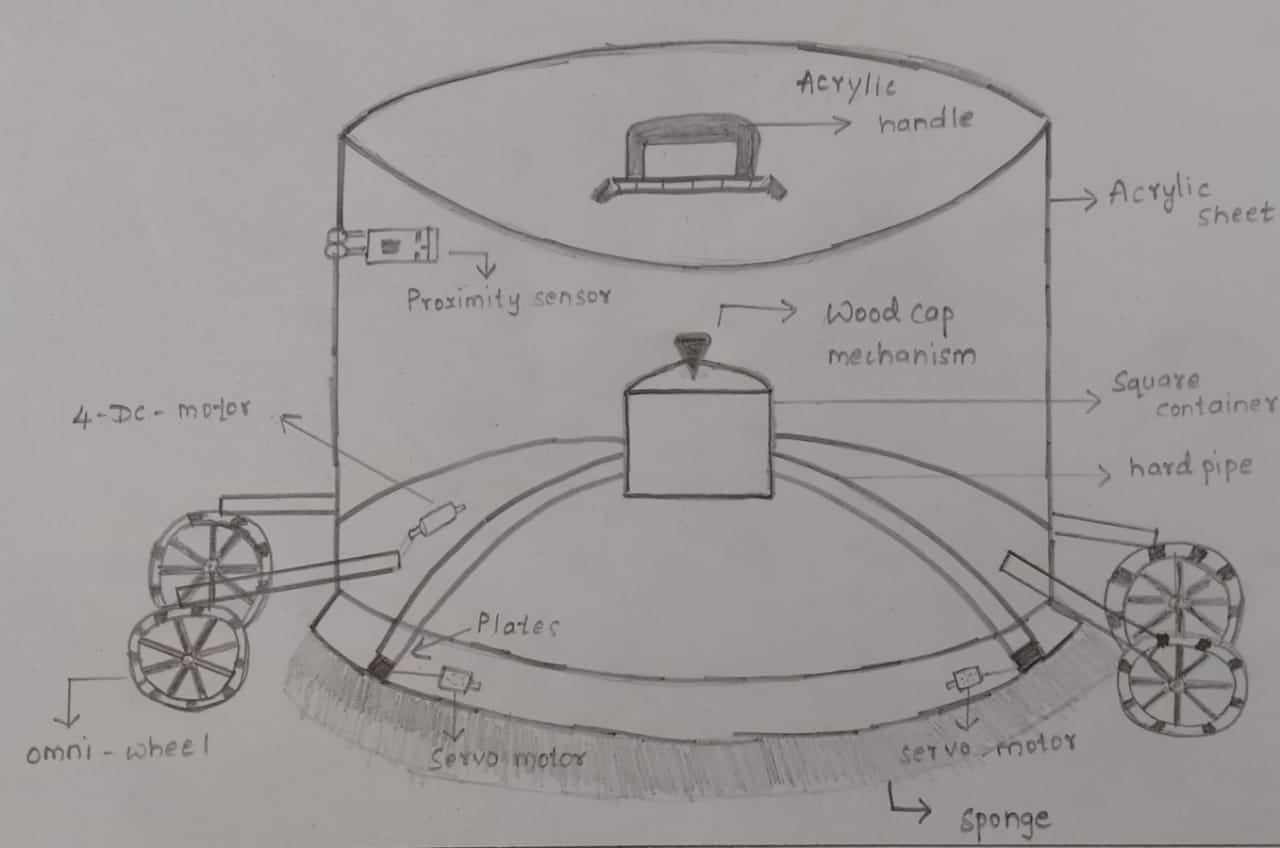 Acrylic
handle
Acrylic
sheet
Proximity sensor
Wood cap
mechanism
Square
container
4-DC-motor
hard pipe
Plates
omni-wheel
Servo motor
servo motor
sponge